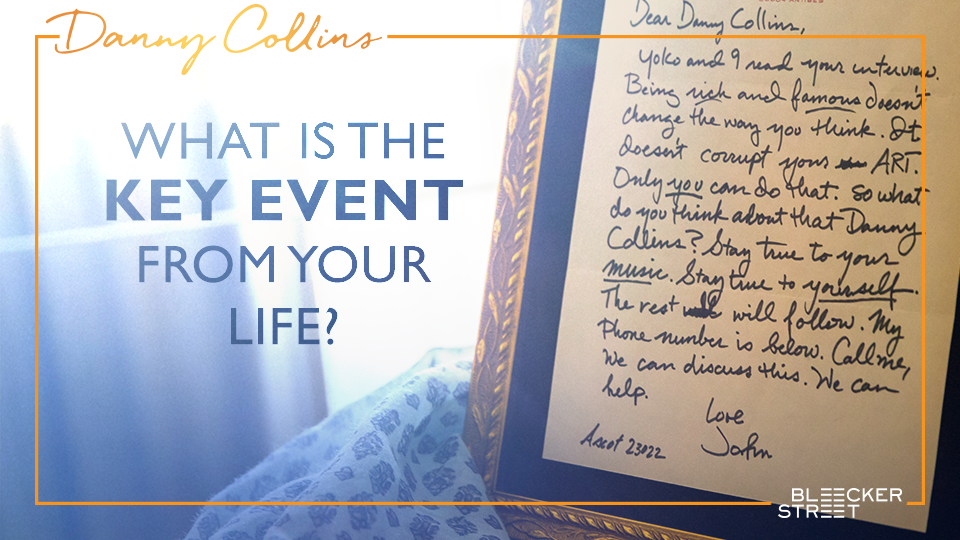 Danny Collins
WHAT IS THE
KEY EVENT
FROM YOUR
LIFE?
Dear Danny Collins,
Yoko and I read your interview.
Being rich and famous doesn't
change the way you think. It
doesn't corrupt your ART.
Only you can do that. So what
do you think about that Danny
Collins? Stay true to your
music. Stay true to yourself.
The rest will follow. My
Phone number is below. Call me,
We can discuss this. We can
help.
Love
John
Ascot 23022
BLEECKER
STREET